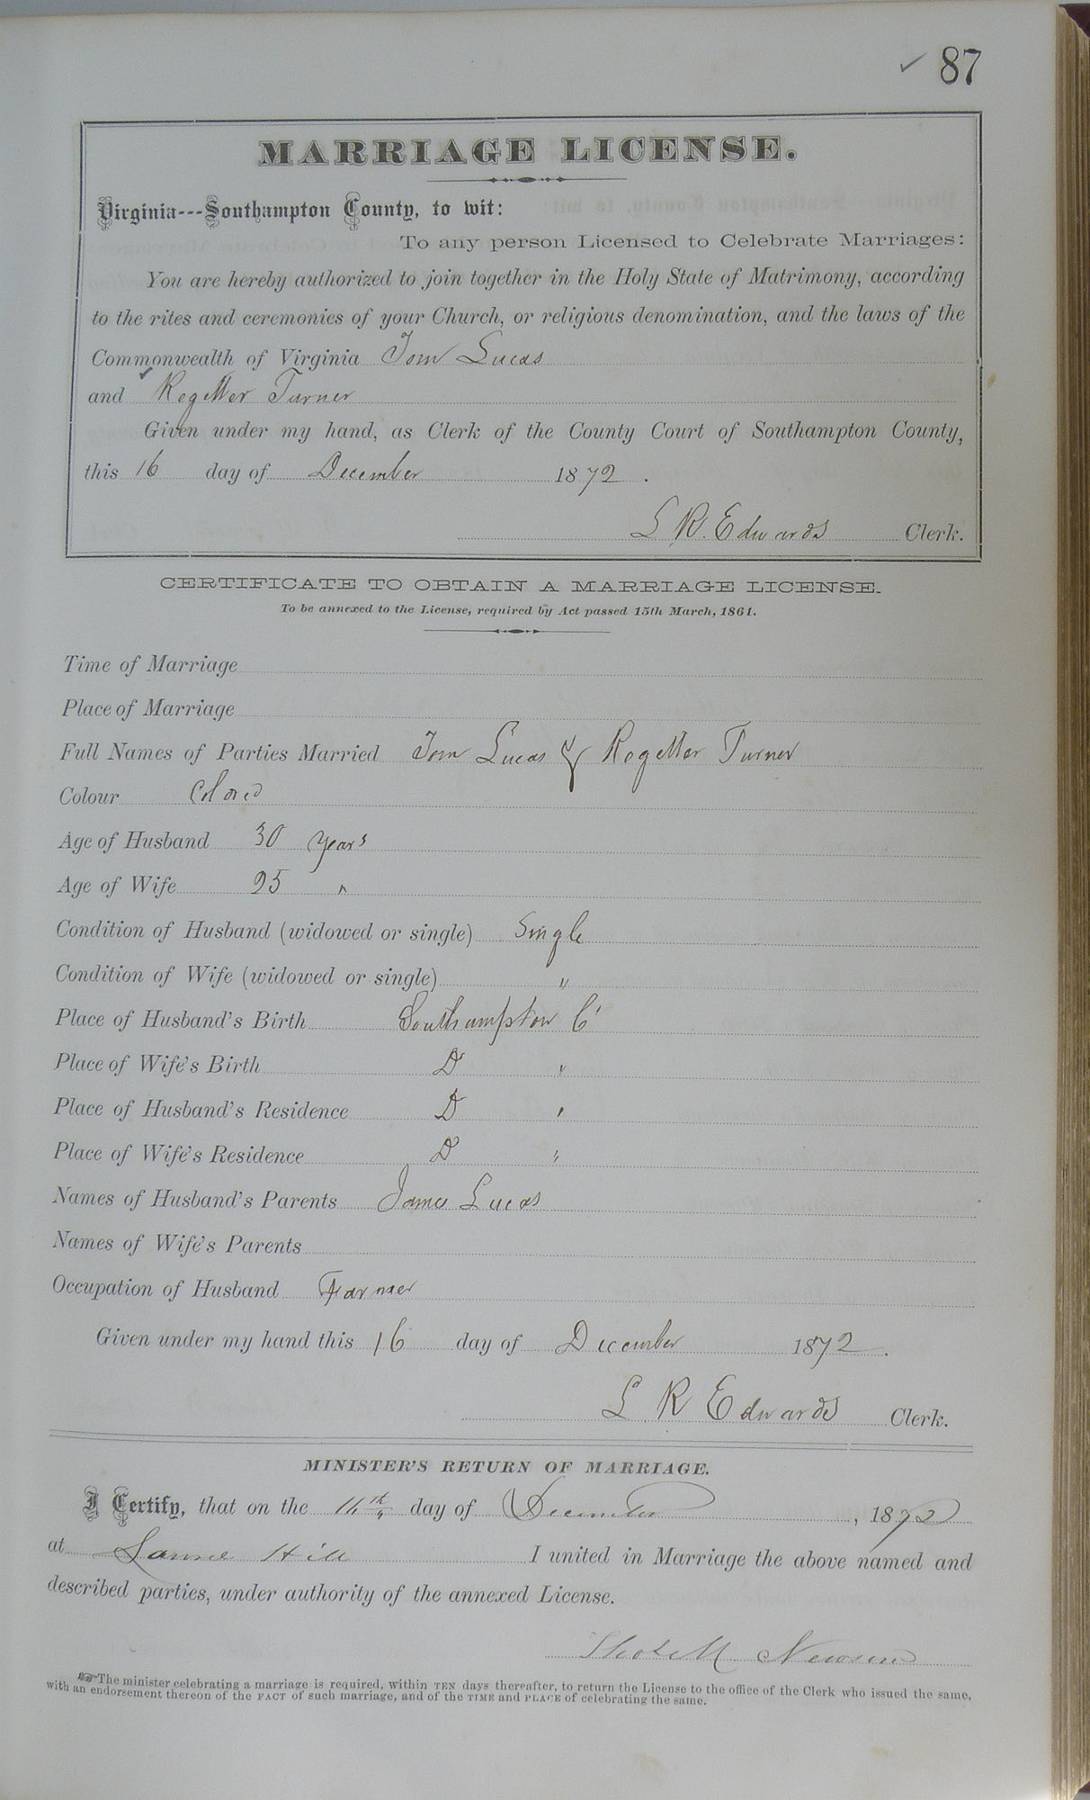 ✓ 87
MARRIAGE LICENSE.
Virginia---Southampton County, to wit:
To any person Licensed to Celebrate Marriages:
You are hereby authorized to join together in the Holy State of Matrimony, according
to the rites and ceremonies of your Church, or religious denomination, and the laws of the
Commonwealth of Virginia Tom Lucas
and Rogetter Turner
Given under my hand, as Clerk of the County Court of Southampton County,
this 16 day of December 1872.
L R. Edwards Clerk.
CERTIFICATE TO OBTAIN A MARRIAGE LICENSE.
To be annexed to the License, required by Act passed 15th March, 1861.
Time of Marriage
Place of Marriage
Full Names of Parties Married Tom Lucas & Rogetter Turner
Colour Colored
Age of Husband 30 years
Age of Wife 25 "
Condition of Husband (widowed or single) Single
Condition of Wife (widowed or single) "
Place of Husband's Birth Southampton C'
Place of Wife's Birth D "
Place of Husband's Residence D "
Place of Wife's Residence D "
Names of Husband's Parents James Lucas
Names of Wife's Parents
Occupation of Husband Farmer
Given under my hand this 16 day of December 1872.
L R Edwards Clerk.
MINISTER'S RETURN OF MARRIAGE.
I Certify, that on the day of December, 1872
at Hill I united in Marriage the above named and
described parties, under authority of the annexed License.
☞ The minister celebrating a marriage is required, within TEN days thereafter, to return the License to the office of the Clerk who issued the same,
with an endorsement thereon of the FACT of such marriage, and of the TIME and PLACE of celebrating the same.